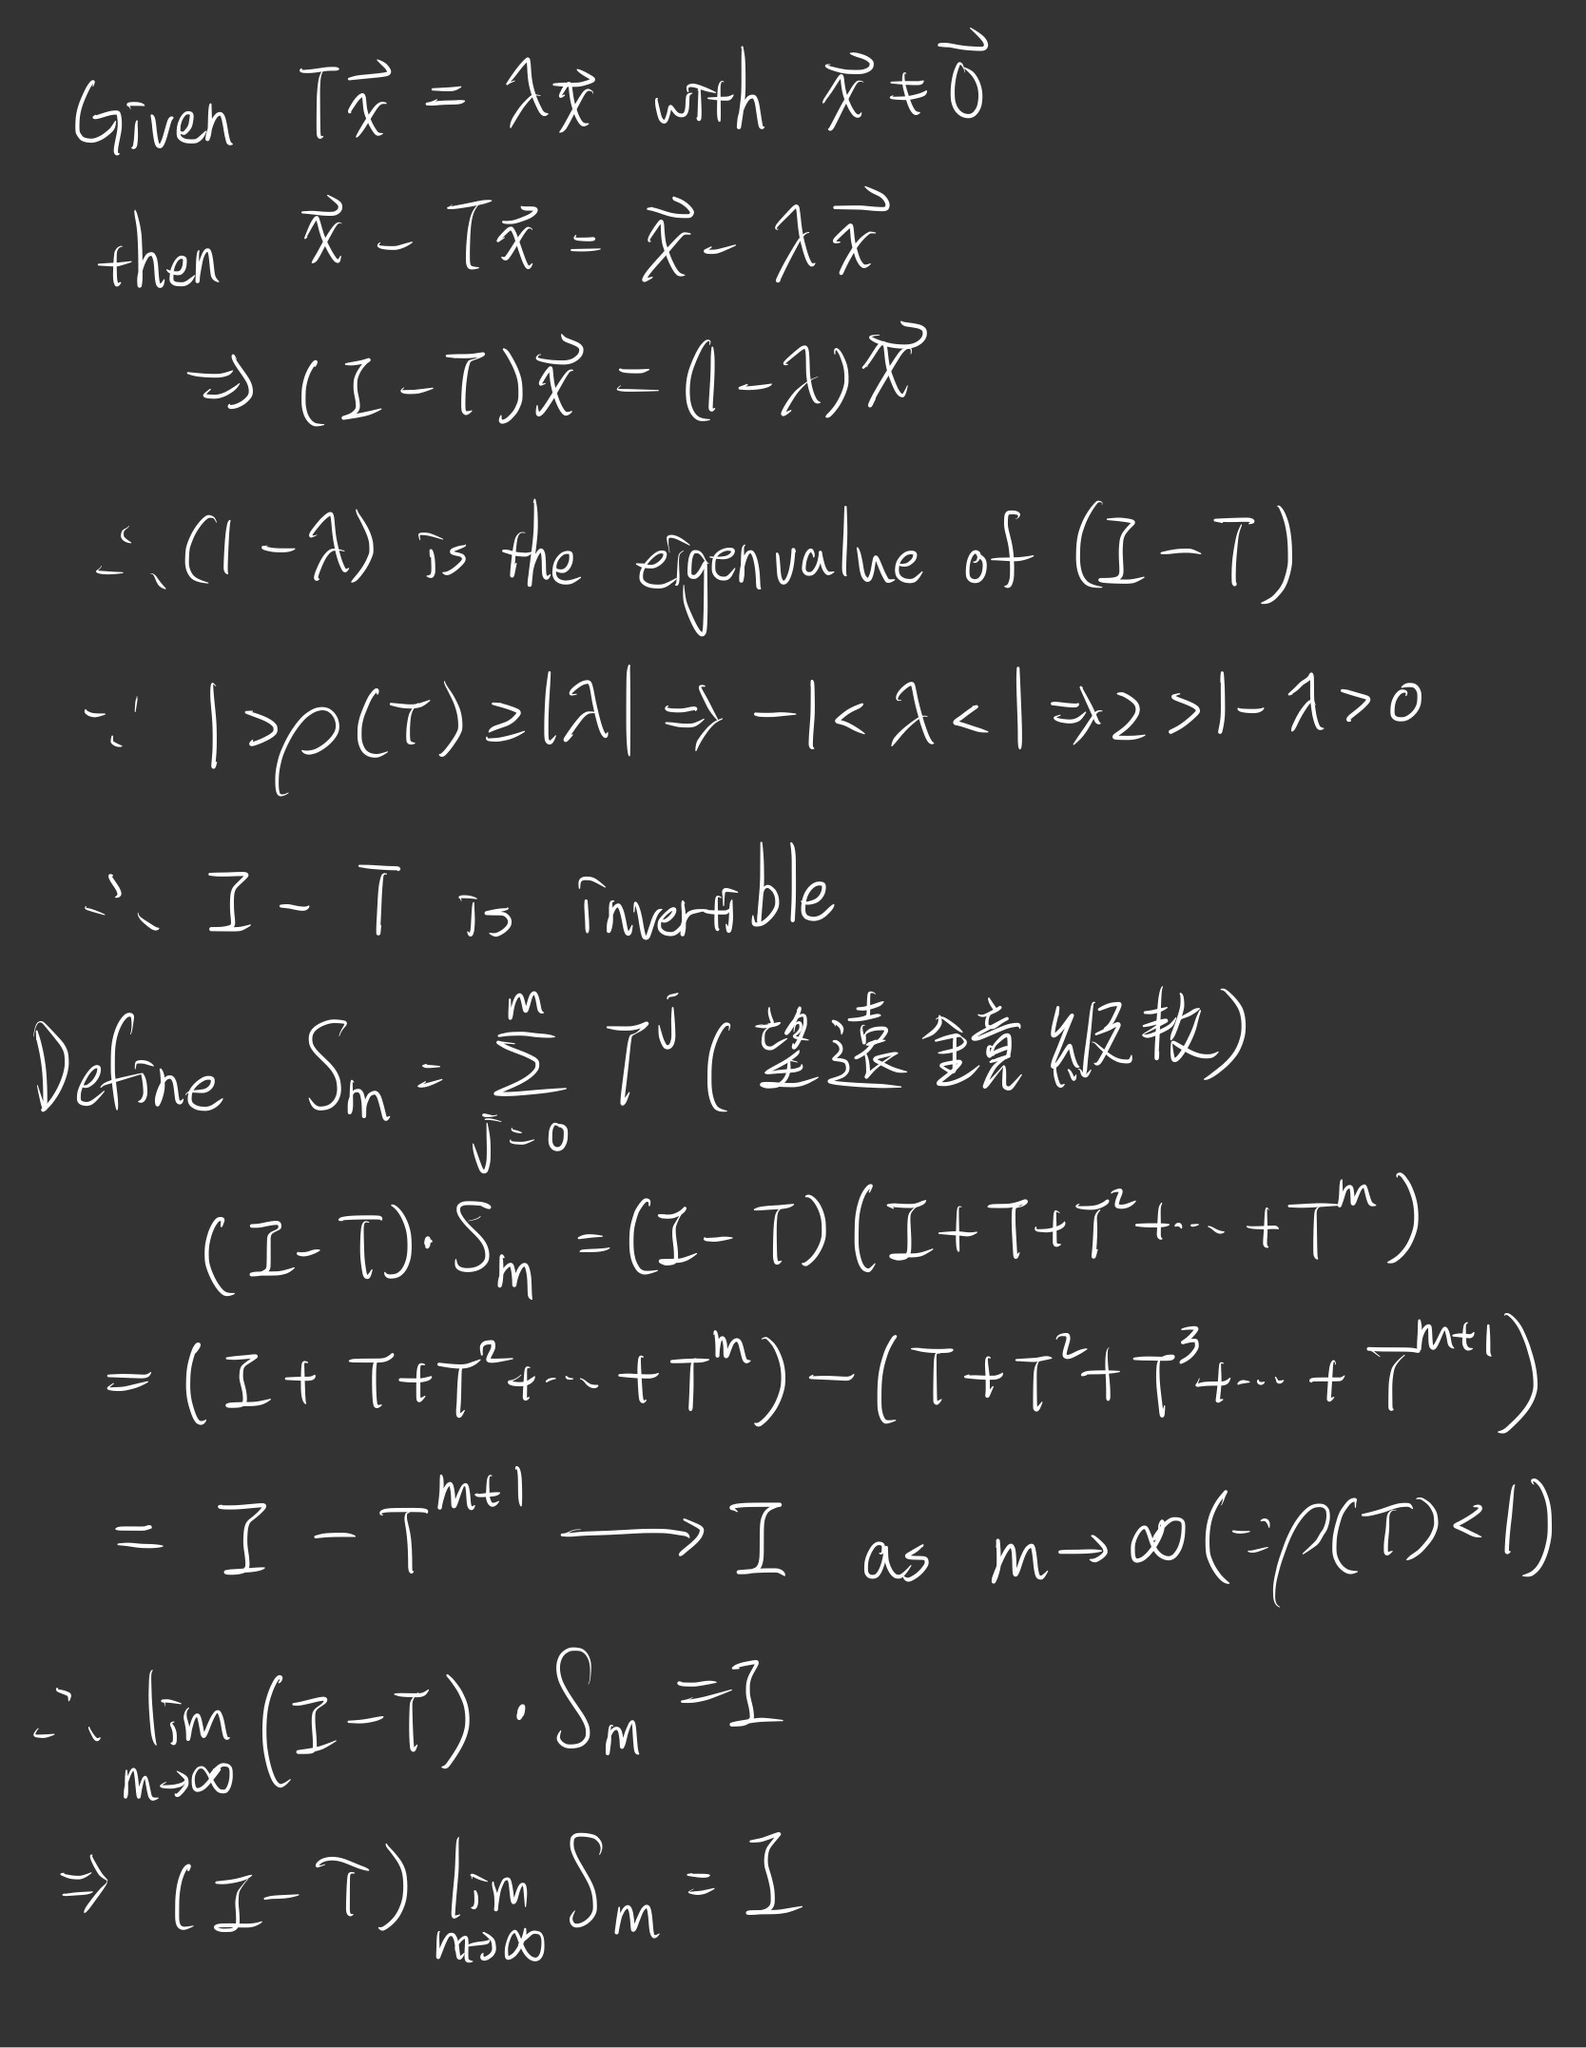 Given T\vec{x} = λ\vec{x} with \vec{x} ≠ \vec{0}
then \vec{x} - T\vec{x} = \vec{x} - λ\vec{x}
⇒ (I - T)\vec{x} = (1 - λ)\vec{x}
∴ (1 - λ) is the eigenvalue of (I - T)
∵ 1 > ρ(T) ≥ |λ| ⇒ -1 < λ < 1 ⇒ 2 > 1 - λ > 0
∴ I - T is invertible
Define S_m = \sum_{j=0}^{m} T^j (望遠鏡級数)
(I - T) · S_m = (I - T)(I + T + T^2 + ⋯ + T^m)
= (I + T + T^2 + ⋯ + T^m) - (T + T^2 + T^3 + ⋯ + T^{m+1})
= I - T^{m+1} ⟶ I as m → ∞ (∵ ρ(T) < 1)
∴ \lim_{m→∞} (I - T) · S_m = I
⇒ (I - T) \lim_{m→∞} S_m = I